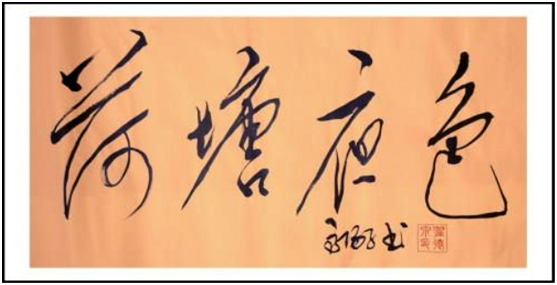 荷塘夜色
书